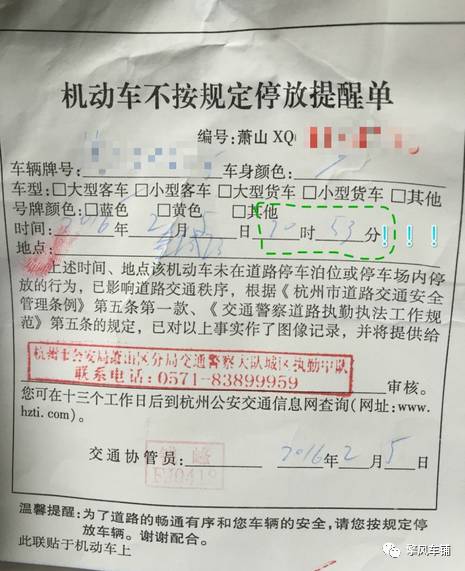 机动车不按规定停放提醒单
编号:萧山 XQ
车辆牌号: 车身颜色:
车型:□大型客车 ☑小型客车 □大型货车 □小型货车 □其他
号牌颜色:□蓝色 □黄色 □其他
时间: 2016年 2月 5日 20时 53分!!!
地点:
上述时间、地点该机动车未在道路停车泊位或停车场内停
放的行为,已影响道路交通秩序,根据《杭州市道路交通安全
管理条例》第五条第一款、《交通警察道路执勤执法工作规
范》第五条的规定,已对以上事实作了图像记录,并将提供给
杭州市公安局萧山区分局交通警察大队城区执勤中队
联系电话:0571-83899959
审核。
您可在十三个工作日后到杭州公安交通信息网查询(网址:www.
hzti.com)。
交通协管员: 2016年 2月 5日
温馨提醒:为了道路的畅通有序和您车辆的安全,请您按规定停
放车辆。谢谢配合。
此联贴于机动车上
擎风车铺